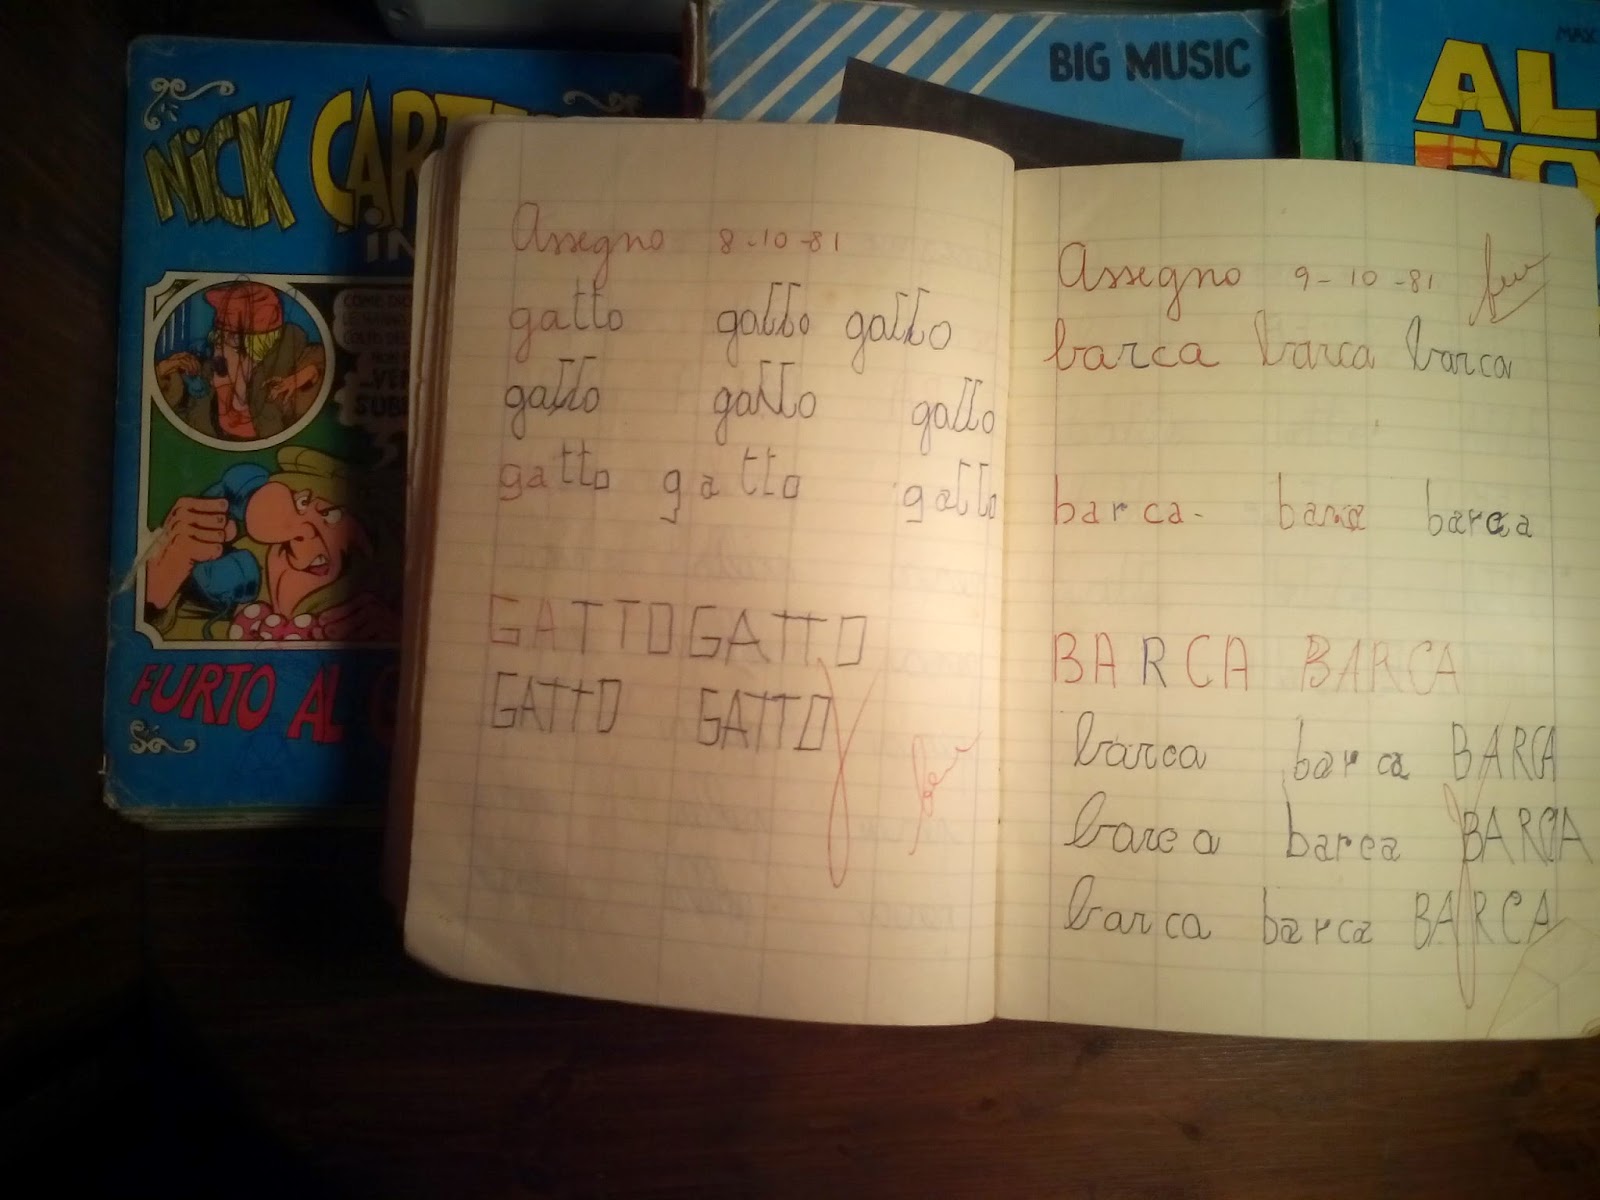 NICK CARTER
IN
COME DICE
FURTO AL
BIG MUSIC
AL
Assegno 8-10-81
gatto gatto gatto
gatto gatto gatto
gatto gatto gatto
GATTO GATTO
GATTO GATTO
Assegno 9-10-81
barca barca barca
barca- barca barca
BARCA BARCA
barca barca BARCA
barca barca BARCA
barca barca BARCA